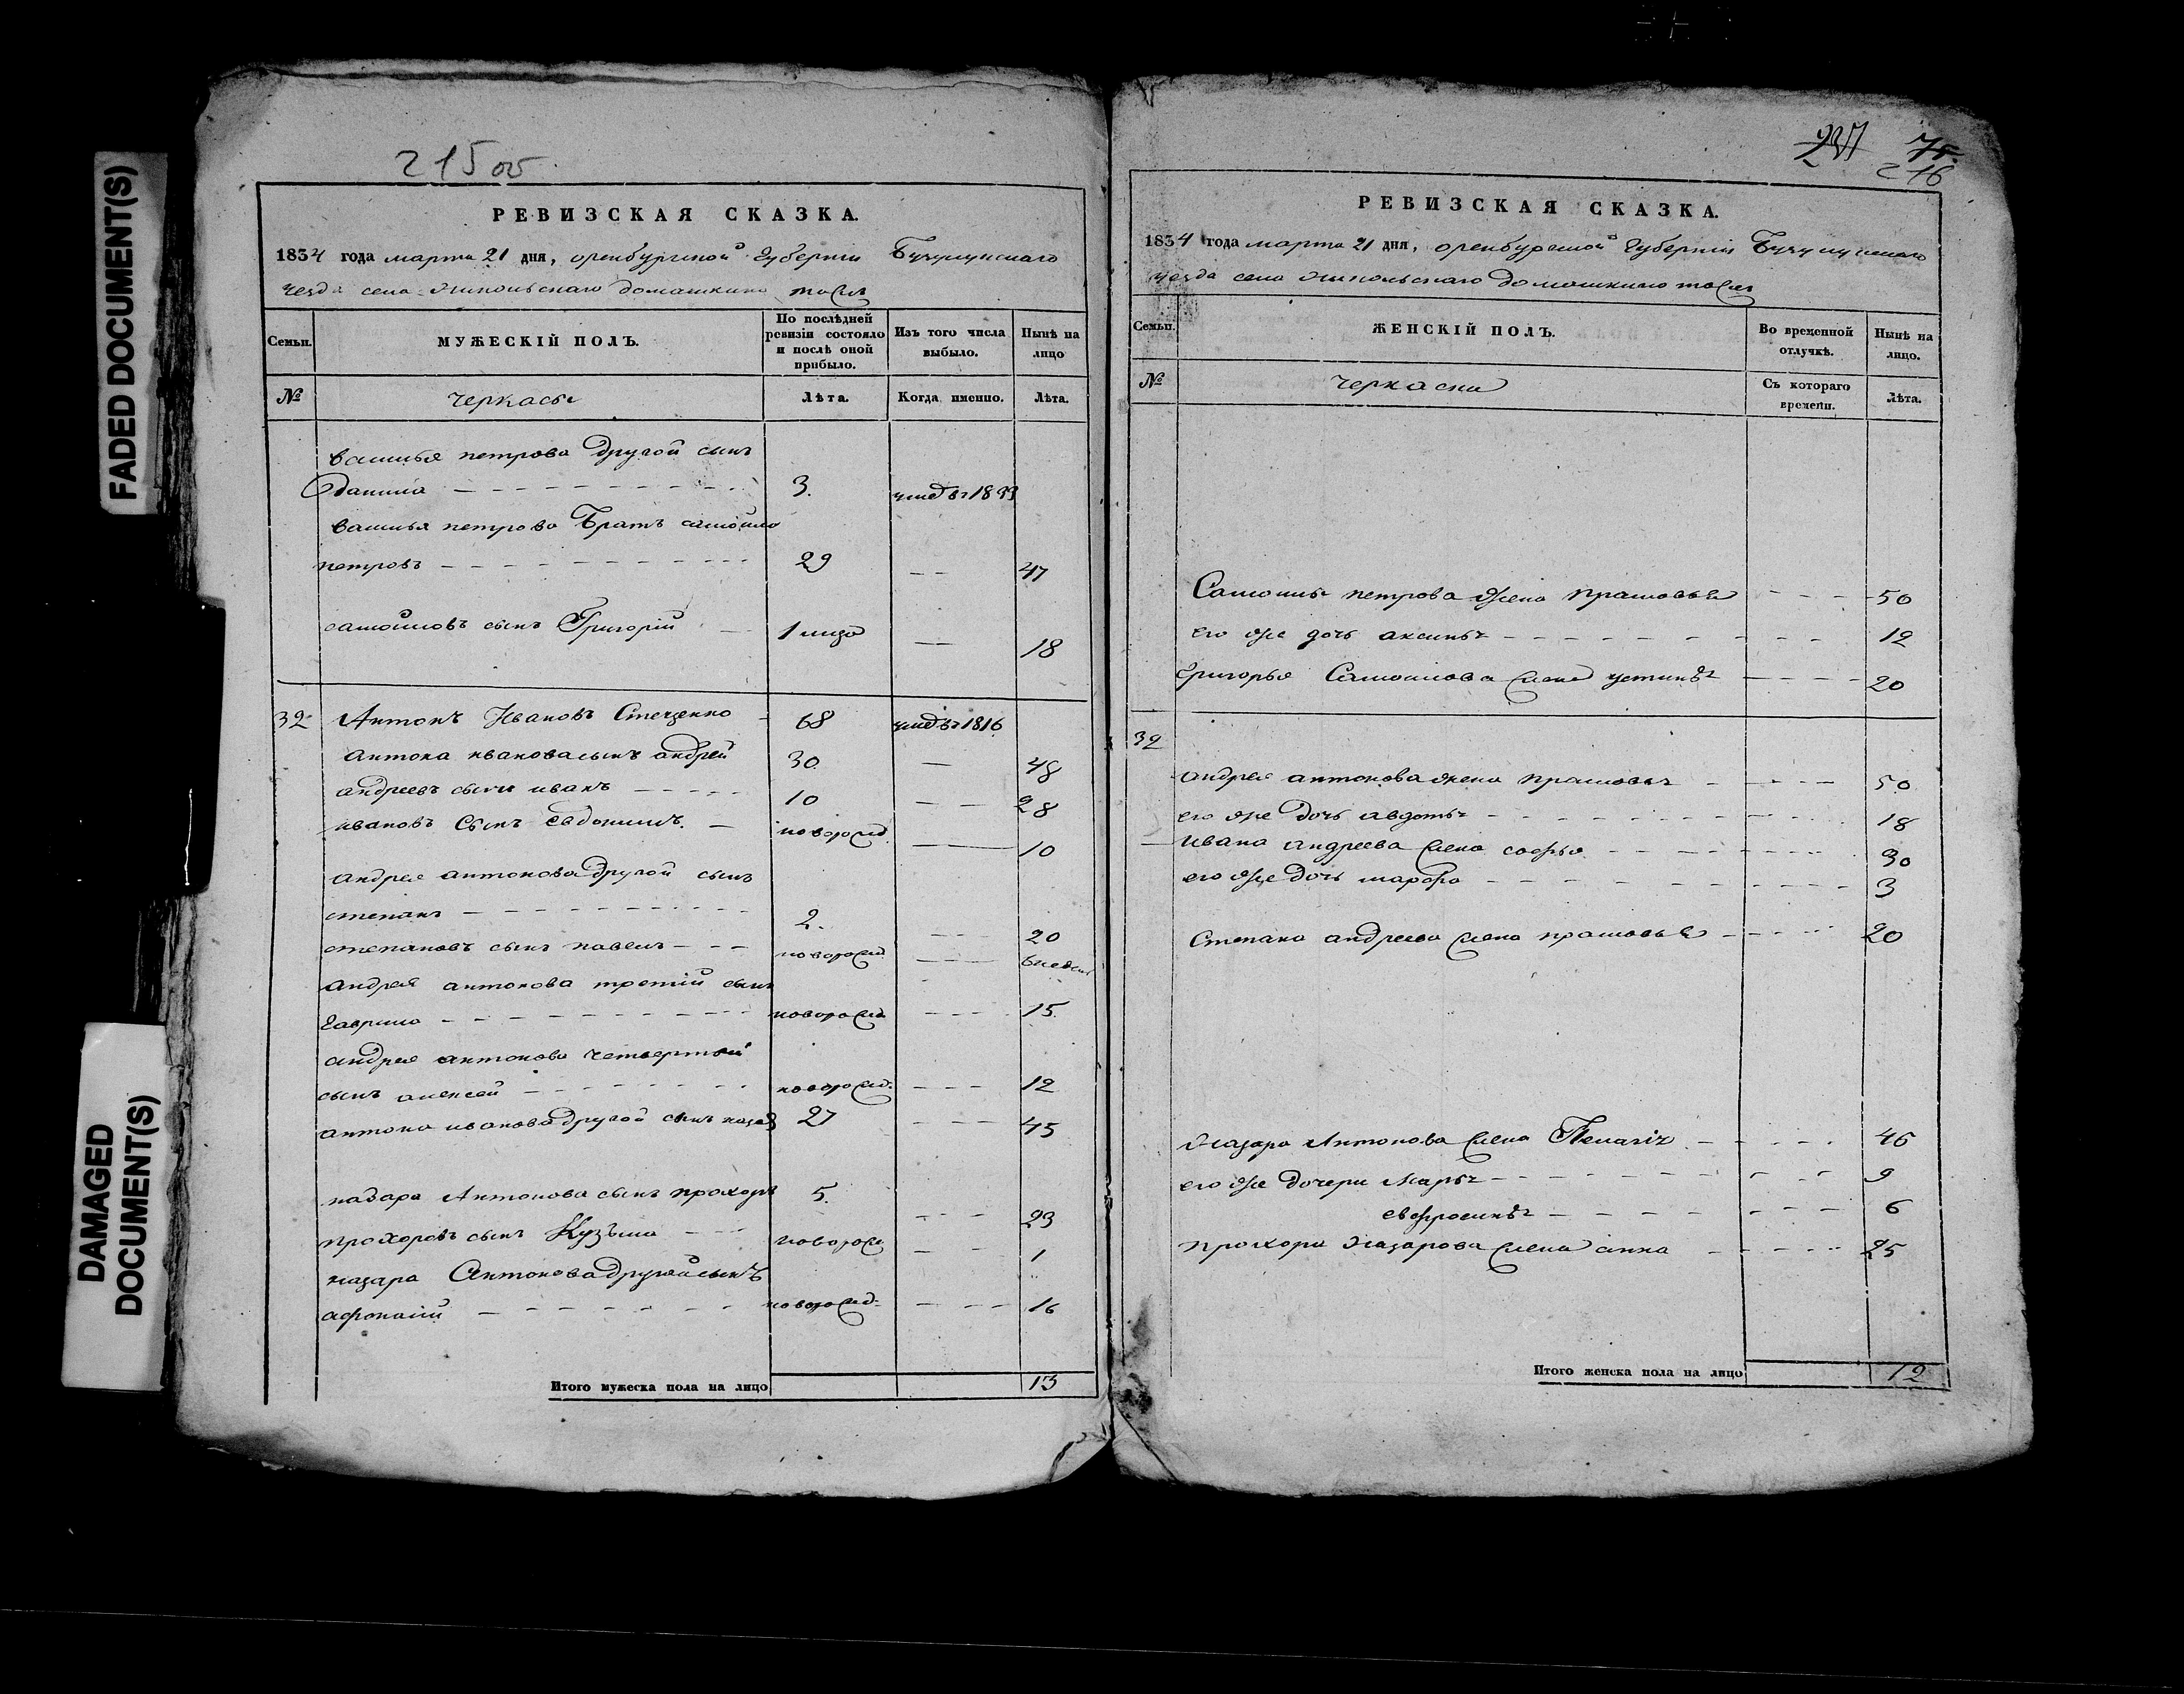 FADED DOCUMENT(S)
DAMAGED
DOCUMENT(S)
215 об.
РЕВИЗСКАЯ СКАЗКА.
1834 года марта 21 дня, оренбургской губернии
уезда села домашкино тожъ
Семьи.
МУЖЕСКІЙ ПОЛЪ.
По послѣдней ревизіи состояло и послѣ оной прибыло.
Изъ того числа выбыло.
Нынѣ на лицо
№
черкасы
Лѣта.
Когда именно.
Лѣта.
василья петрова другой сынъ
данила 3. умед въ 1833
василья петрова братъ самойло
петровъ 29 47
самойловъ сынъ Григорій 18
32 Антонъ Ивановъ Стеценко 68 умед въ 1816
антона иванова сынъ андрей 30 48
андреевъ сынъ иванъ 10 28
ивановъ сынъ евдокимъ новорожд. 10
андрея антонова другой сынъ
степанъ 2. 20
степановъ сынъ павелъ новорожд. 6 недель
андрея антонова третій сынъ
гаврило новорожд 15
андрея антонова четвертый
сынъ алексей новорожд. 12
антона иванова другой сынъ назар 27 45
назара Антонова сынъ прохоръ 5. 23
прохоровъ сынъ Кузьма новорож 1
назара Антонова другой сынъ
афонасій новорожд. 16
Итого мужеска пола на лицо 13
237 75.
216
РЕВИЗСКАЯ СКАЗКА.
1834 года марта 21 дня, оренбургской губерніи
уезда села домашкино тожъ
Семьи.
ЖЕНСКІЙ ПОЛЪ.
Во временной отлучкѣ.
Нынѣ на лицо.
№
черкаски
Съ котораго времени.
Лѣта.
Самойлы петрова жена прасковья 50
его же дочь аксинья 12
григорья Самойлова жена устинья 20
32
андрея антонова жена прасковья 50
его же дочь авдотья 18
ивана андреева жена софья 30
его же дочь марфа 3
Степана андреева жена прасковья 20
Назара Антонова жена Пелагія 46
его же дочери Марья 9
евфросинья 6
прохора Назарова жена анна 25
Итого женска пола на лицо 12